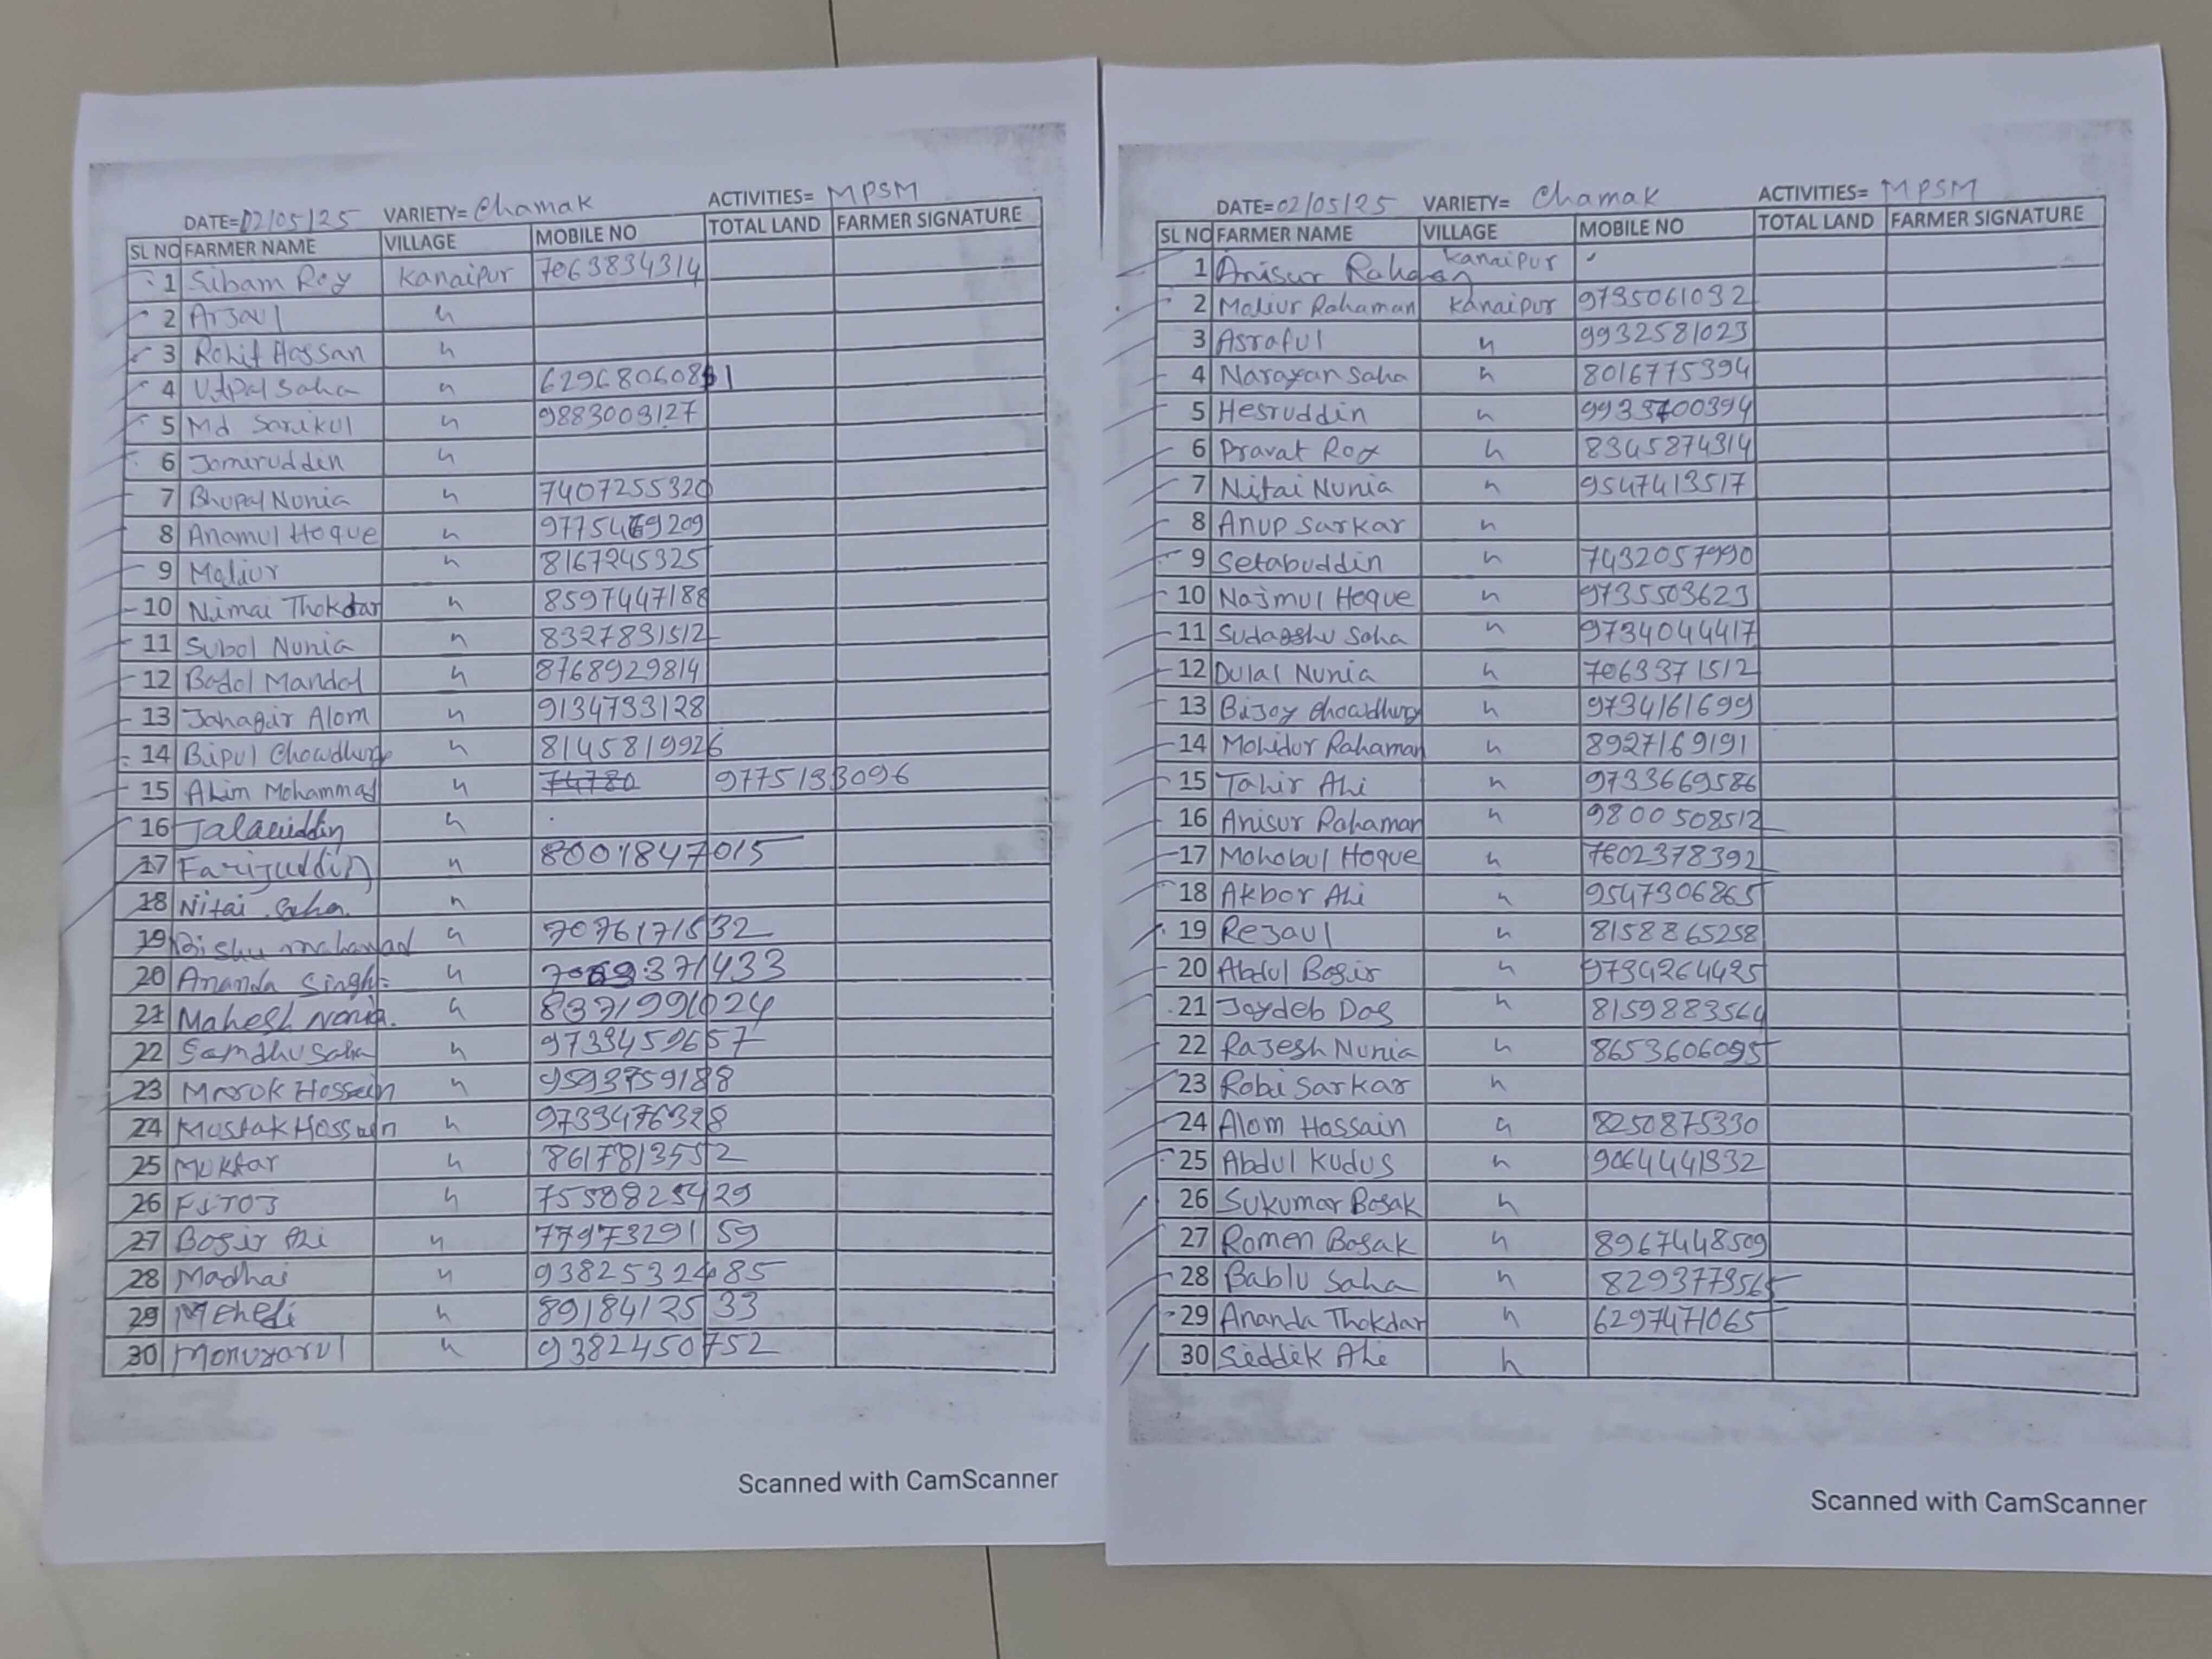 DATE=02/05/25 VARIETY= Chamak ACTIVITIES= MPSM
SL NO FARMER NAME VILLAGE MOBILE NO TOTAL LAND FARMER SIGNATURE
1 Sibam Roy Kanaipur 7063834314
2 Arjaul "
3 Rohit Hassan "
4 Utpal Saha "
5 Md Sarikul " 9883003127
6 Jomiruddin "
7 Bhupal Nunia " 7407255320
8 Anamul Hoque "
9 Maliur " 8167245325
10 Nimai Thokdar " 8597447188
11 Subol Nunia " 8327831512
12 Badol Mandol " 8768929814
13 Jahagir Alom " 9134733128
14 Bipul Chowdhury " 8145819926
15 Alim Mohammad " 74780 9775133096
16 Jalauddin "
17 Farijuddin " 8001847015
18 Nitai Saha "
19 Bishu " 7076171532
20 Ananda Singh "
21 Mahesh Nonia. " 8371991024
22 Samdhu Saha " 9733459657
23 Marok Hossain " 9593759188
24 Mostak Hossain " 9733476328
25 Moktar " 8617813552
26 Firoj " 7558825429
27 Bosir Ali " 7797329159
28 Madhai " 9382532485
29 Mehedi " 8918412533
30 Monuyarul " 9382450752
Scanned with CamScanner
DATE=02/05/25 VARIETY= Chamak ACTIVITIES= MPSM
SL NO FARMER NAME VILLAGE MOBILE NO TOTAL LAND FARMER SIGNATURE
1 Anisur Rahaman Kanaipur
2 Maliur Rahaman Kanaipur 9735061032
3 Asraful " 9932581023
4 Narayan Saha " 8016775394
5 Hesruddin " 9933700394
6 Pravat Roy " 8345874314
7 Nitai Nunia " 9547413517
8 Anup Sarkar "
9 Setabuddin " 7432057990
10 Najmul Hoque " 9735503623
11 Sudagshu Saha " 9734044417
12 Dulal Nunia " 7063371512
13 Bijoy Chowdhury " 9734161699
14 Mohidur Rahaman " 8927169191
15 Tahir Ali " 9733669586
16 Anisur Rahaman " 9800508512
17 Mohobul Hoque " 7602378392
18 Akbor Ali " 9547306865
19 Rejaul " 8158865258
20 Abdul Bosir " 9734264425
21 Joydeb Das " 8159883564
22 Rajesh Nunia " 8653606095
23 Robi Sarkar "
24 Alom Hossain " 8250875330
25 Abdul Kudus " 9064441332
26 Sukumar Bosak "
27 Romen Bosak " 8967448509
28 Bablu Saha " 8293773565
29 Ananda Thokdar " 6297471065
30 Siddik Ali "
Scanned with CamScanner